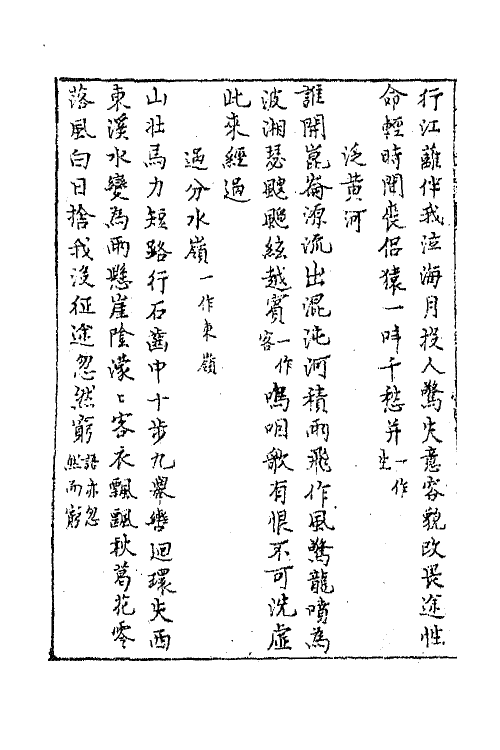 行江蘺伴我泣海月投人驚失意容貌改畏途性
命輕時聞喪侶猿一呌千愁并一作生
泛黄河
誰開崑崙源流出混沌河積雨飛作風驚龍噴為
波湘瑟颼飀絃越賓一作客嗚咽歌有恨不可洗虛
此來經過
過分水嶺一作東嶺
山壯馬力短路行石齒中十步九舉轡迴環失西
東溪水變為雨懸崖陰濛〻客衣飄飄秋葛花零
落風白日捨我沒征途忽然窮語亦忽然而窮